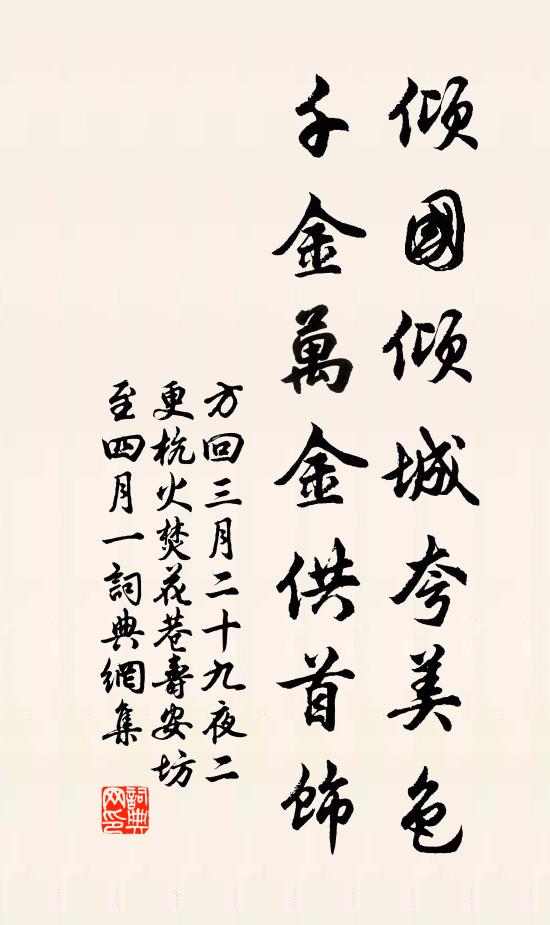 傾國傾城夸美色
千金萬金供首飾
方回三月二十九夜二
更杭火焚花巷壽安坊
至四月一詞典網集
詞典
网印